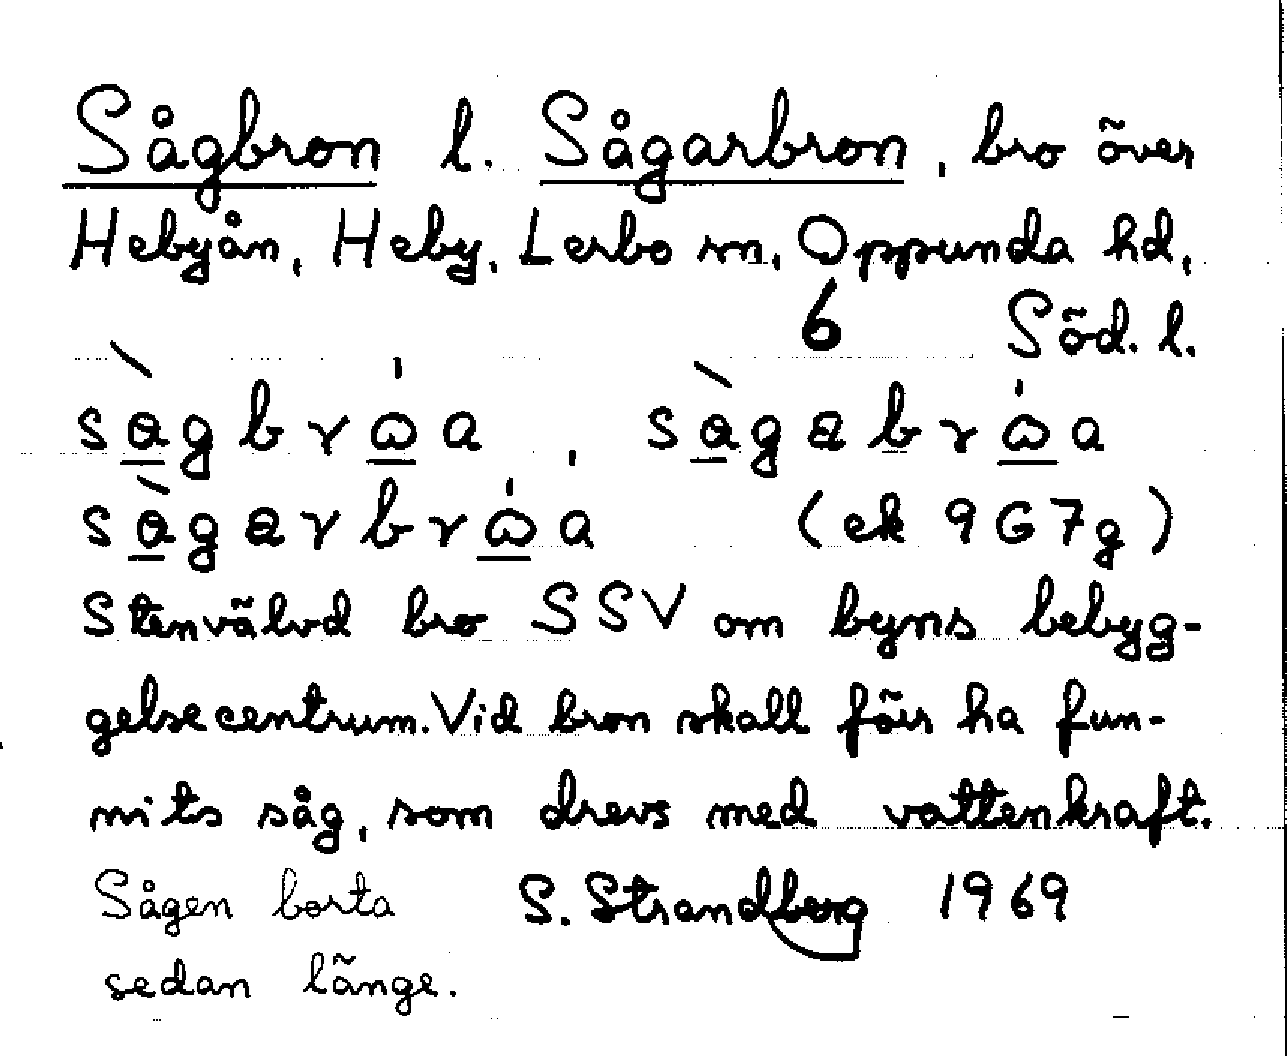 Sågbron l. Sågarbron, bro över
Hebyån, Heby, Lerbo sn, Oppunda hd,
6 Söd. l.
(ek 9G7g)
Stenvälvd bro SSV om byns bebyg-
gelsecentrum. Vid bron skall förr ha fun-
nits såg, som drevs med vattenkraft.
Sågen borta S. Strandberg 1969
sedan länge.